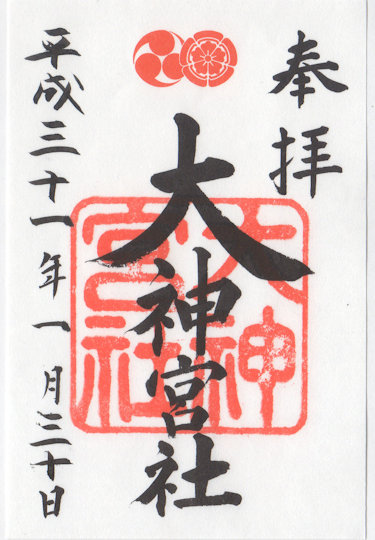 奉拝
大神宮社
大神
宮社
平成三十一年一月三十日